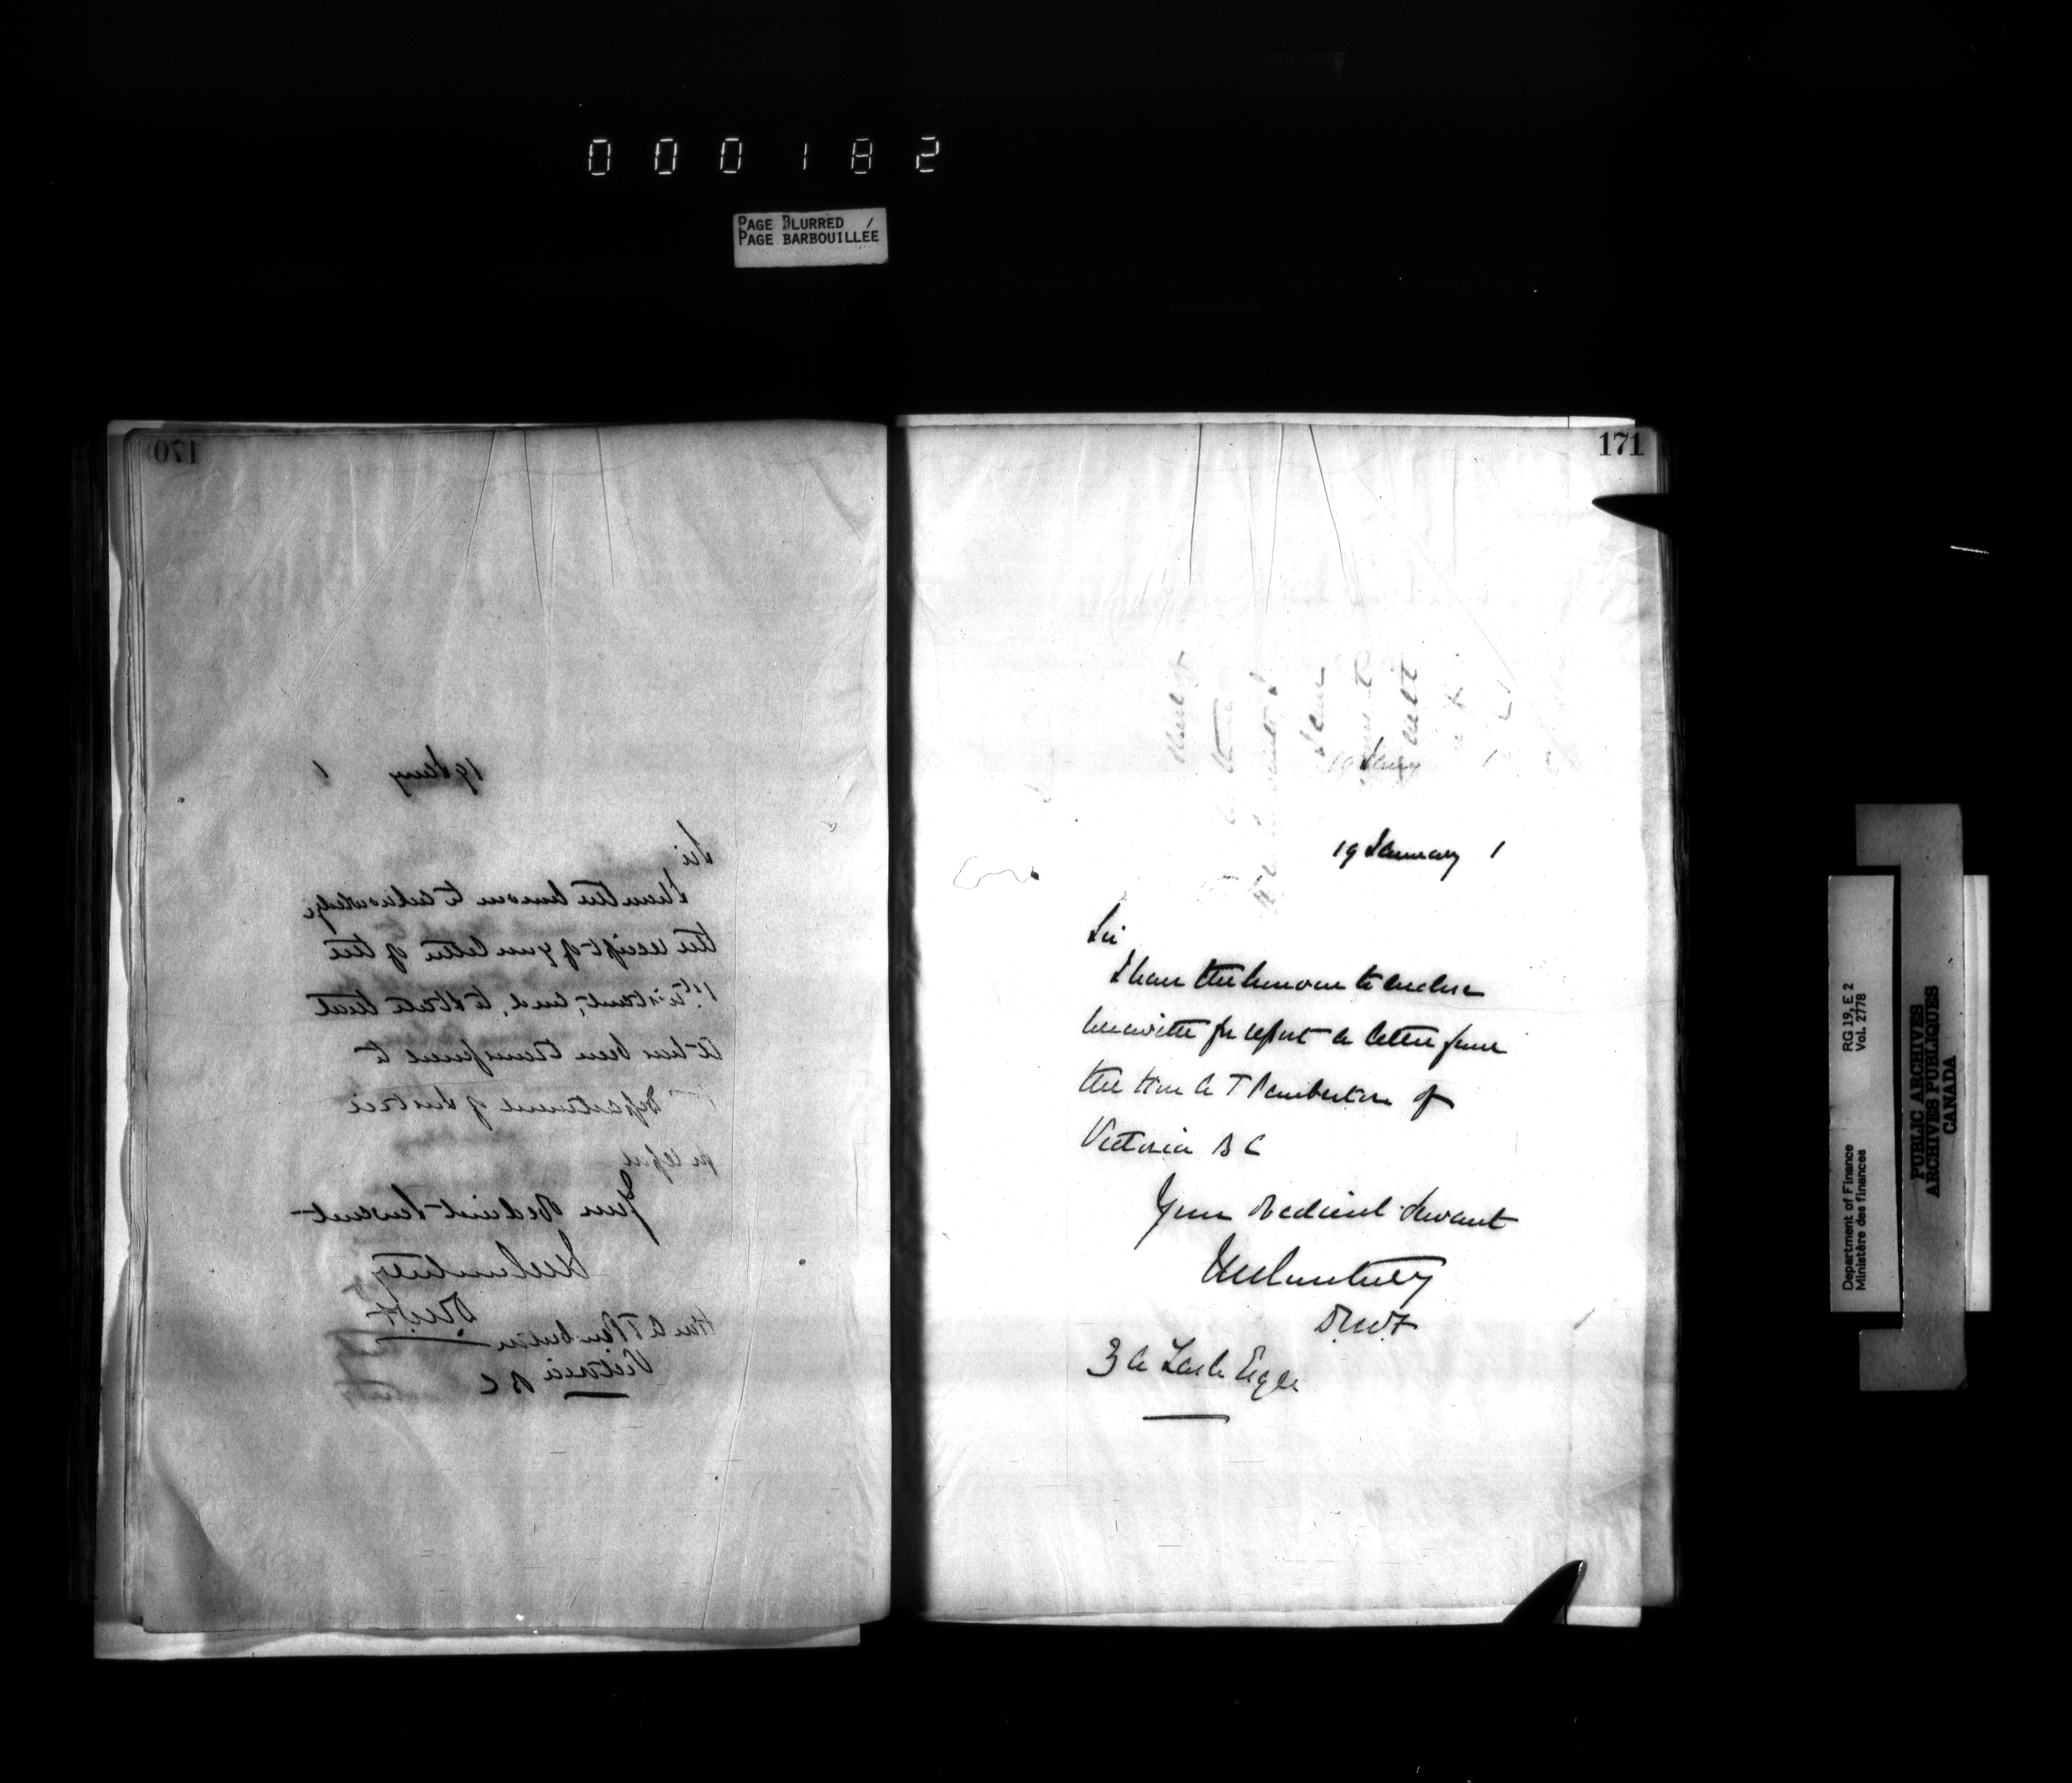 000182
PAGE BLURRED
PAGE BARBOUILLÉE
170
19 Jany 1
Sir
I have the honour to acknowledge
the receipt of your letter of the
1st instant, and, to state that
it has been transferred to
Department of Justice
for report
Your Obedient Servant
Hon A T Pemberton
Victoria B C
171
19 Jany 1
19 January 1
Sir
I have the honour to enclose
herewith for report a letter from
the Hon A T Pemberton of
Victoria B C
Your Obedient Servant
Z A Lash Esqre
Department of Finance
Ministère des finances
RG 19, E 2
Vol. 2778
PUBLIC ARCHIVES
ARCHIVES PUBLIQUES
CANADA